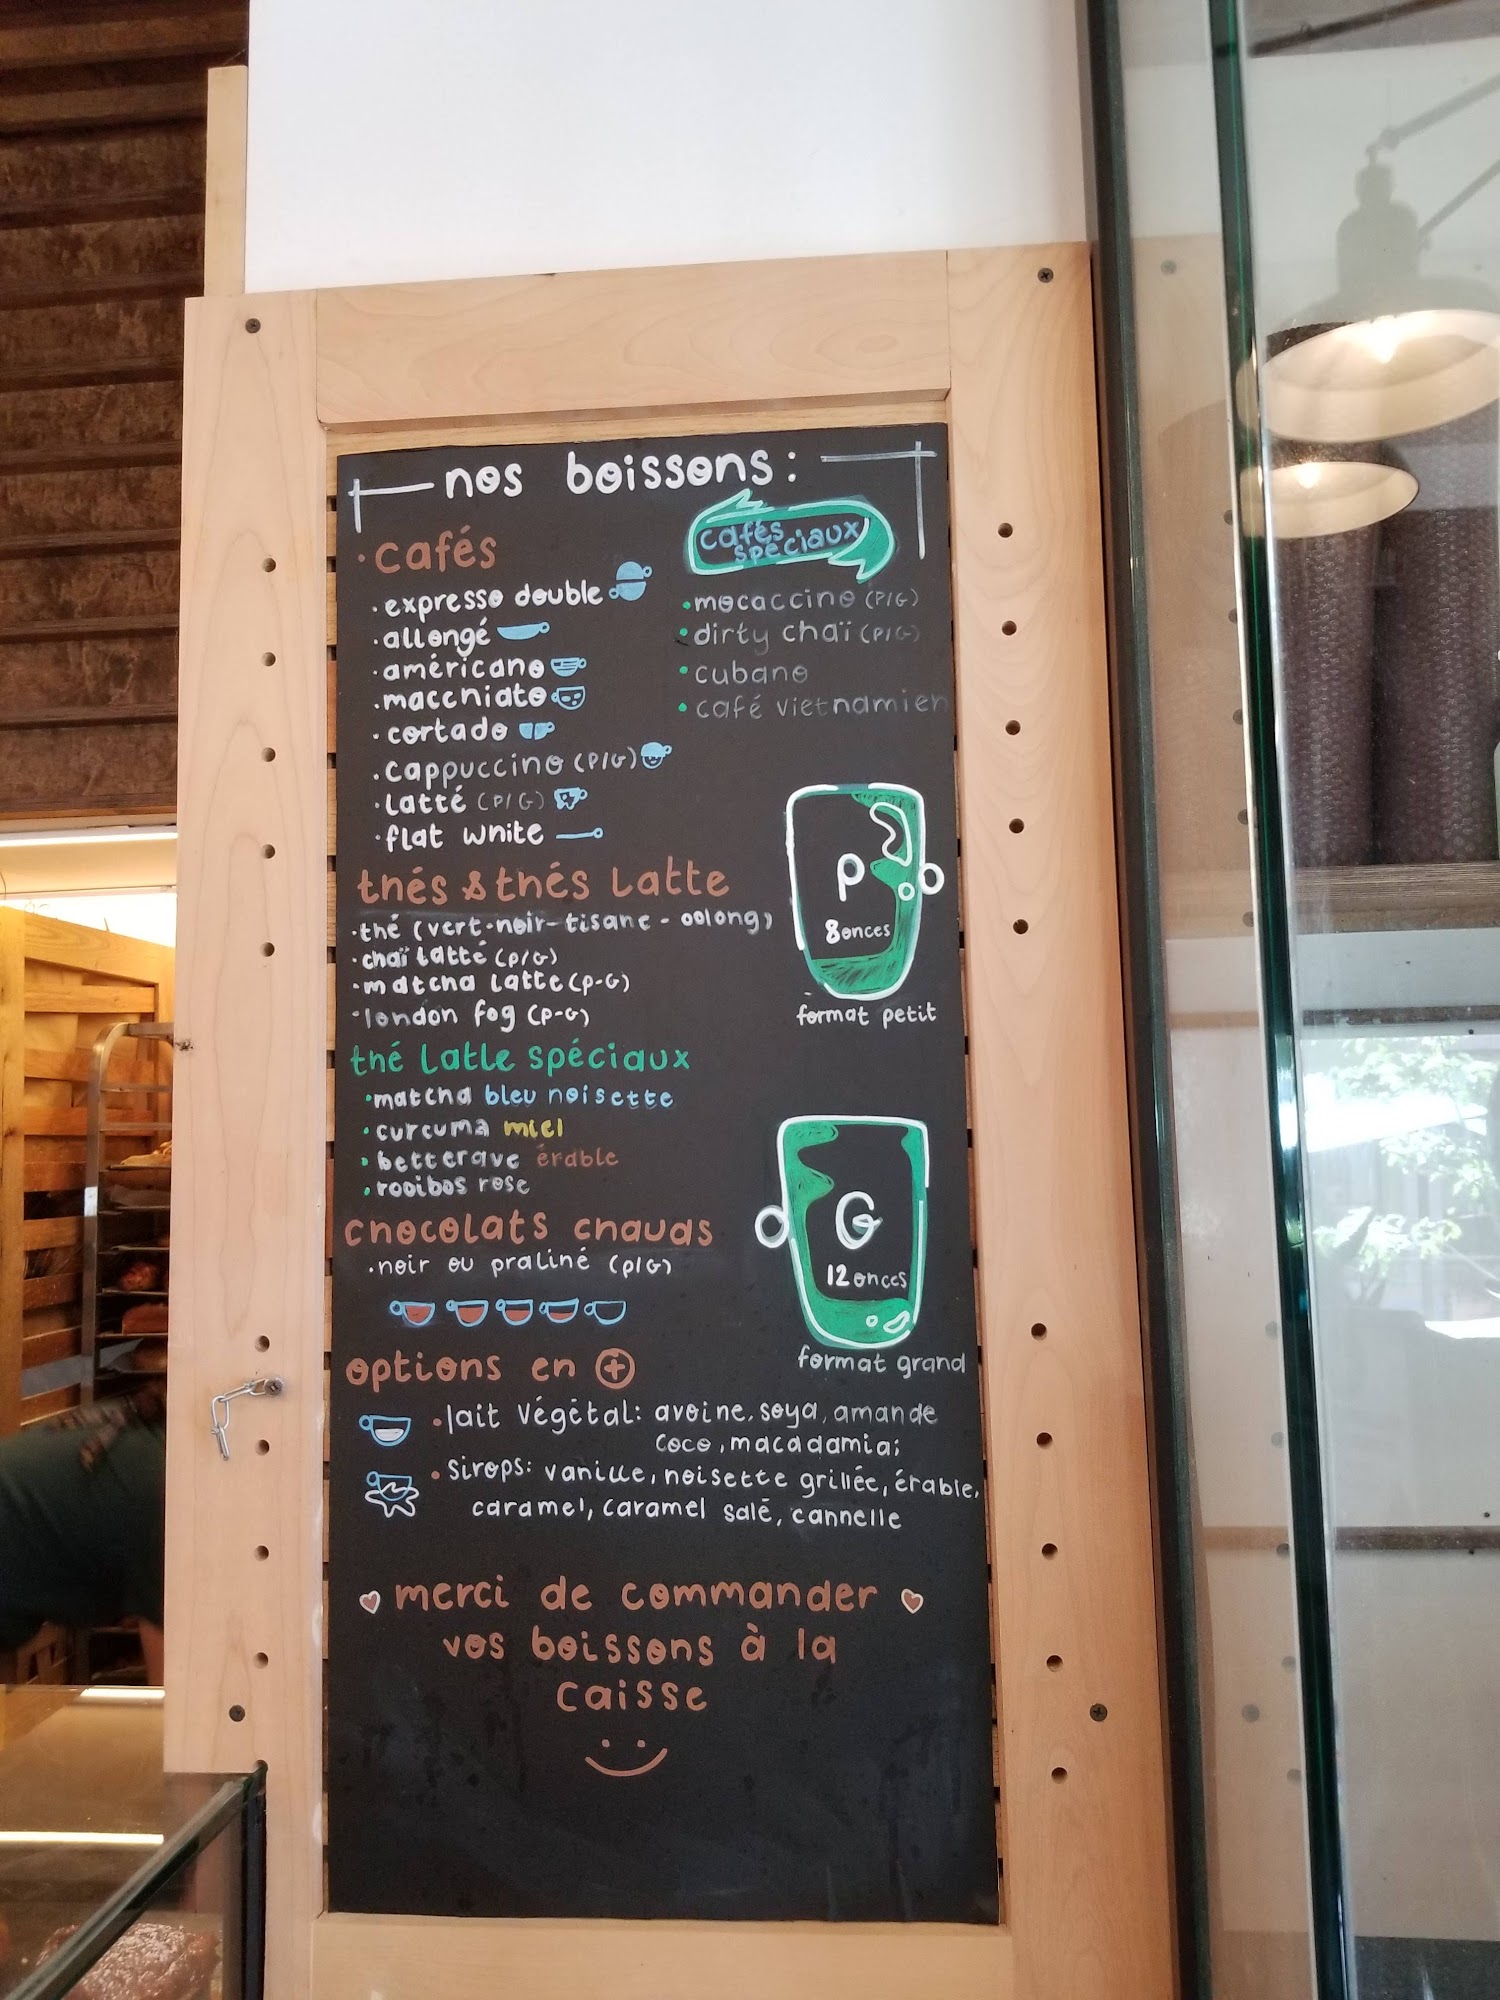 nos boissons:
• cafés
• expresso double
• allongé
• américano
• macchiato
• cortado
• cappuccino (P/G)
• latté (P/G)
• flat white
cafés
spéciaux
• mocaccino (P/G)
• dirty chaï (P/G)
• cubano
• café vietnamien
thés & thés latte
• thé (vert-noir-tisane-oolong)
• chaï latté (P/G)
• matcha latte (P-G)
• london fog (P-G)
thé latte spéciaux
• matcha bleu noisette
• curcuma miel
• betterave érable
• rooibos rose
chocolats chauds
• noir ou praliné (P/G)
P
8 onces
format petit
G
12 onces
format grand
options en +
• lait végétal: avoine, soya, amande
coco, macadamia;
• sirops: vanille, noisette grillée, érable,
caramel, caramel salé, cannelle
merci de commander
vos boissons à la
caisse